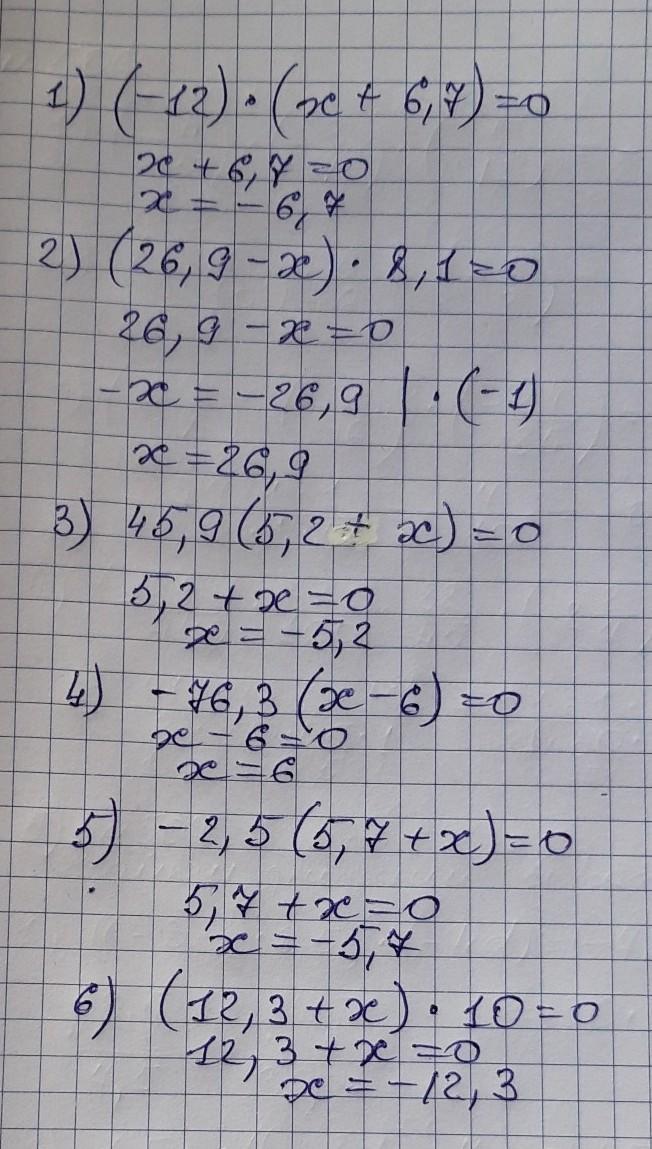 1) (-12) · (x + 6,7) = 0
x + 6,7 = 0
x = - 6,7
2) (26,9 - x) · 8,1 = 0
26,9 - x = 0
-x = -26,9 | · (-1)
x = 26,9
3) 45,9 (5,2 + x) = 0
5,2 + x = 0
x = -5,2
4) - 76,3 (x - 6) = 0
x - 6 = 0
x = 6
5) - 2,5 (5,7 + x) = 0
5,7 + x = 0
x = -5,7
6) (12,3 + x) · 10 = 0
12,3 + x = 0
x = -12,3